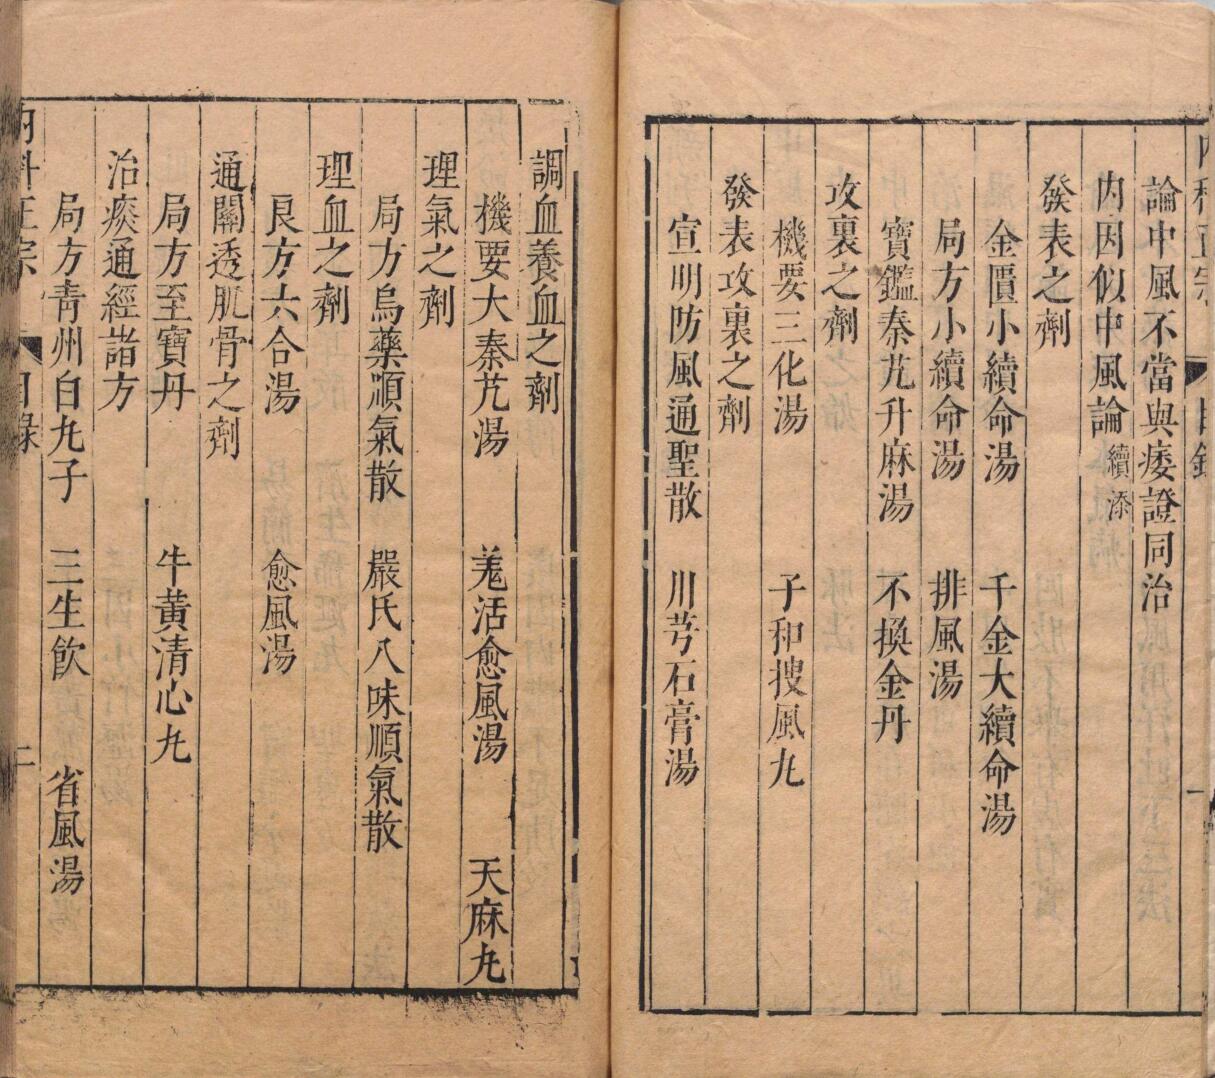 內科正宗 目錄 一
論中風不當與痿證同治
內因似中風論 續添
發表之劑
金匱小續命湯 千金大續命湯
局方小續命湯 排風湯
寶鑑秦艽升麻湯 不換金丹
攻裏之劑
機要三化湯 子和搜風丸
發表攻裏之劑
宣明防風通聖散 川芎石膏湯
調血養血之劑
機要大秦艽湯 羗活愈風湯 天麻丸
理氣之劑
局方烏藥順氣散 嚴氏八味順氣散
理血之劑
良方六合湯 愈風湯
通關透肌骨之劑
局方至寶丹 牛黃清心丸
治痰通經諸方
局方青州白丸子 三生飲 省風湯
內科正宗 目錄 二